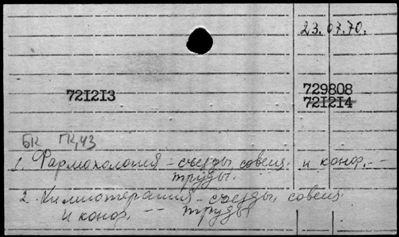 23.07.70.
729808
721213 721214
БК ГК,43
1. Фармокология – съезды, совещ. и конф. --
труды.
2. Химиотерапия – съезды, совещ.
и конф. -- труды